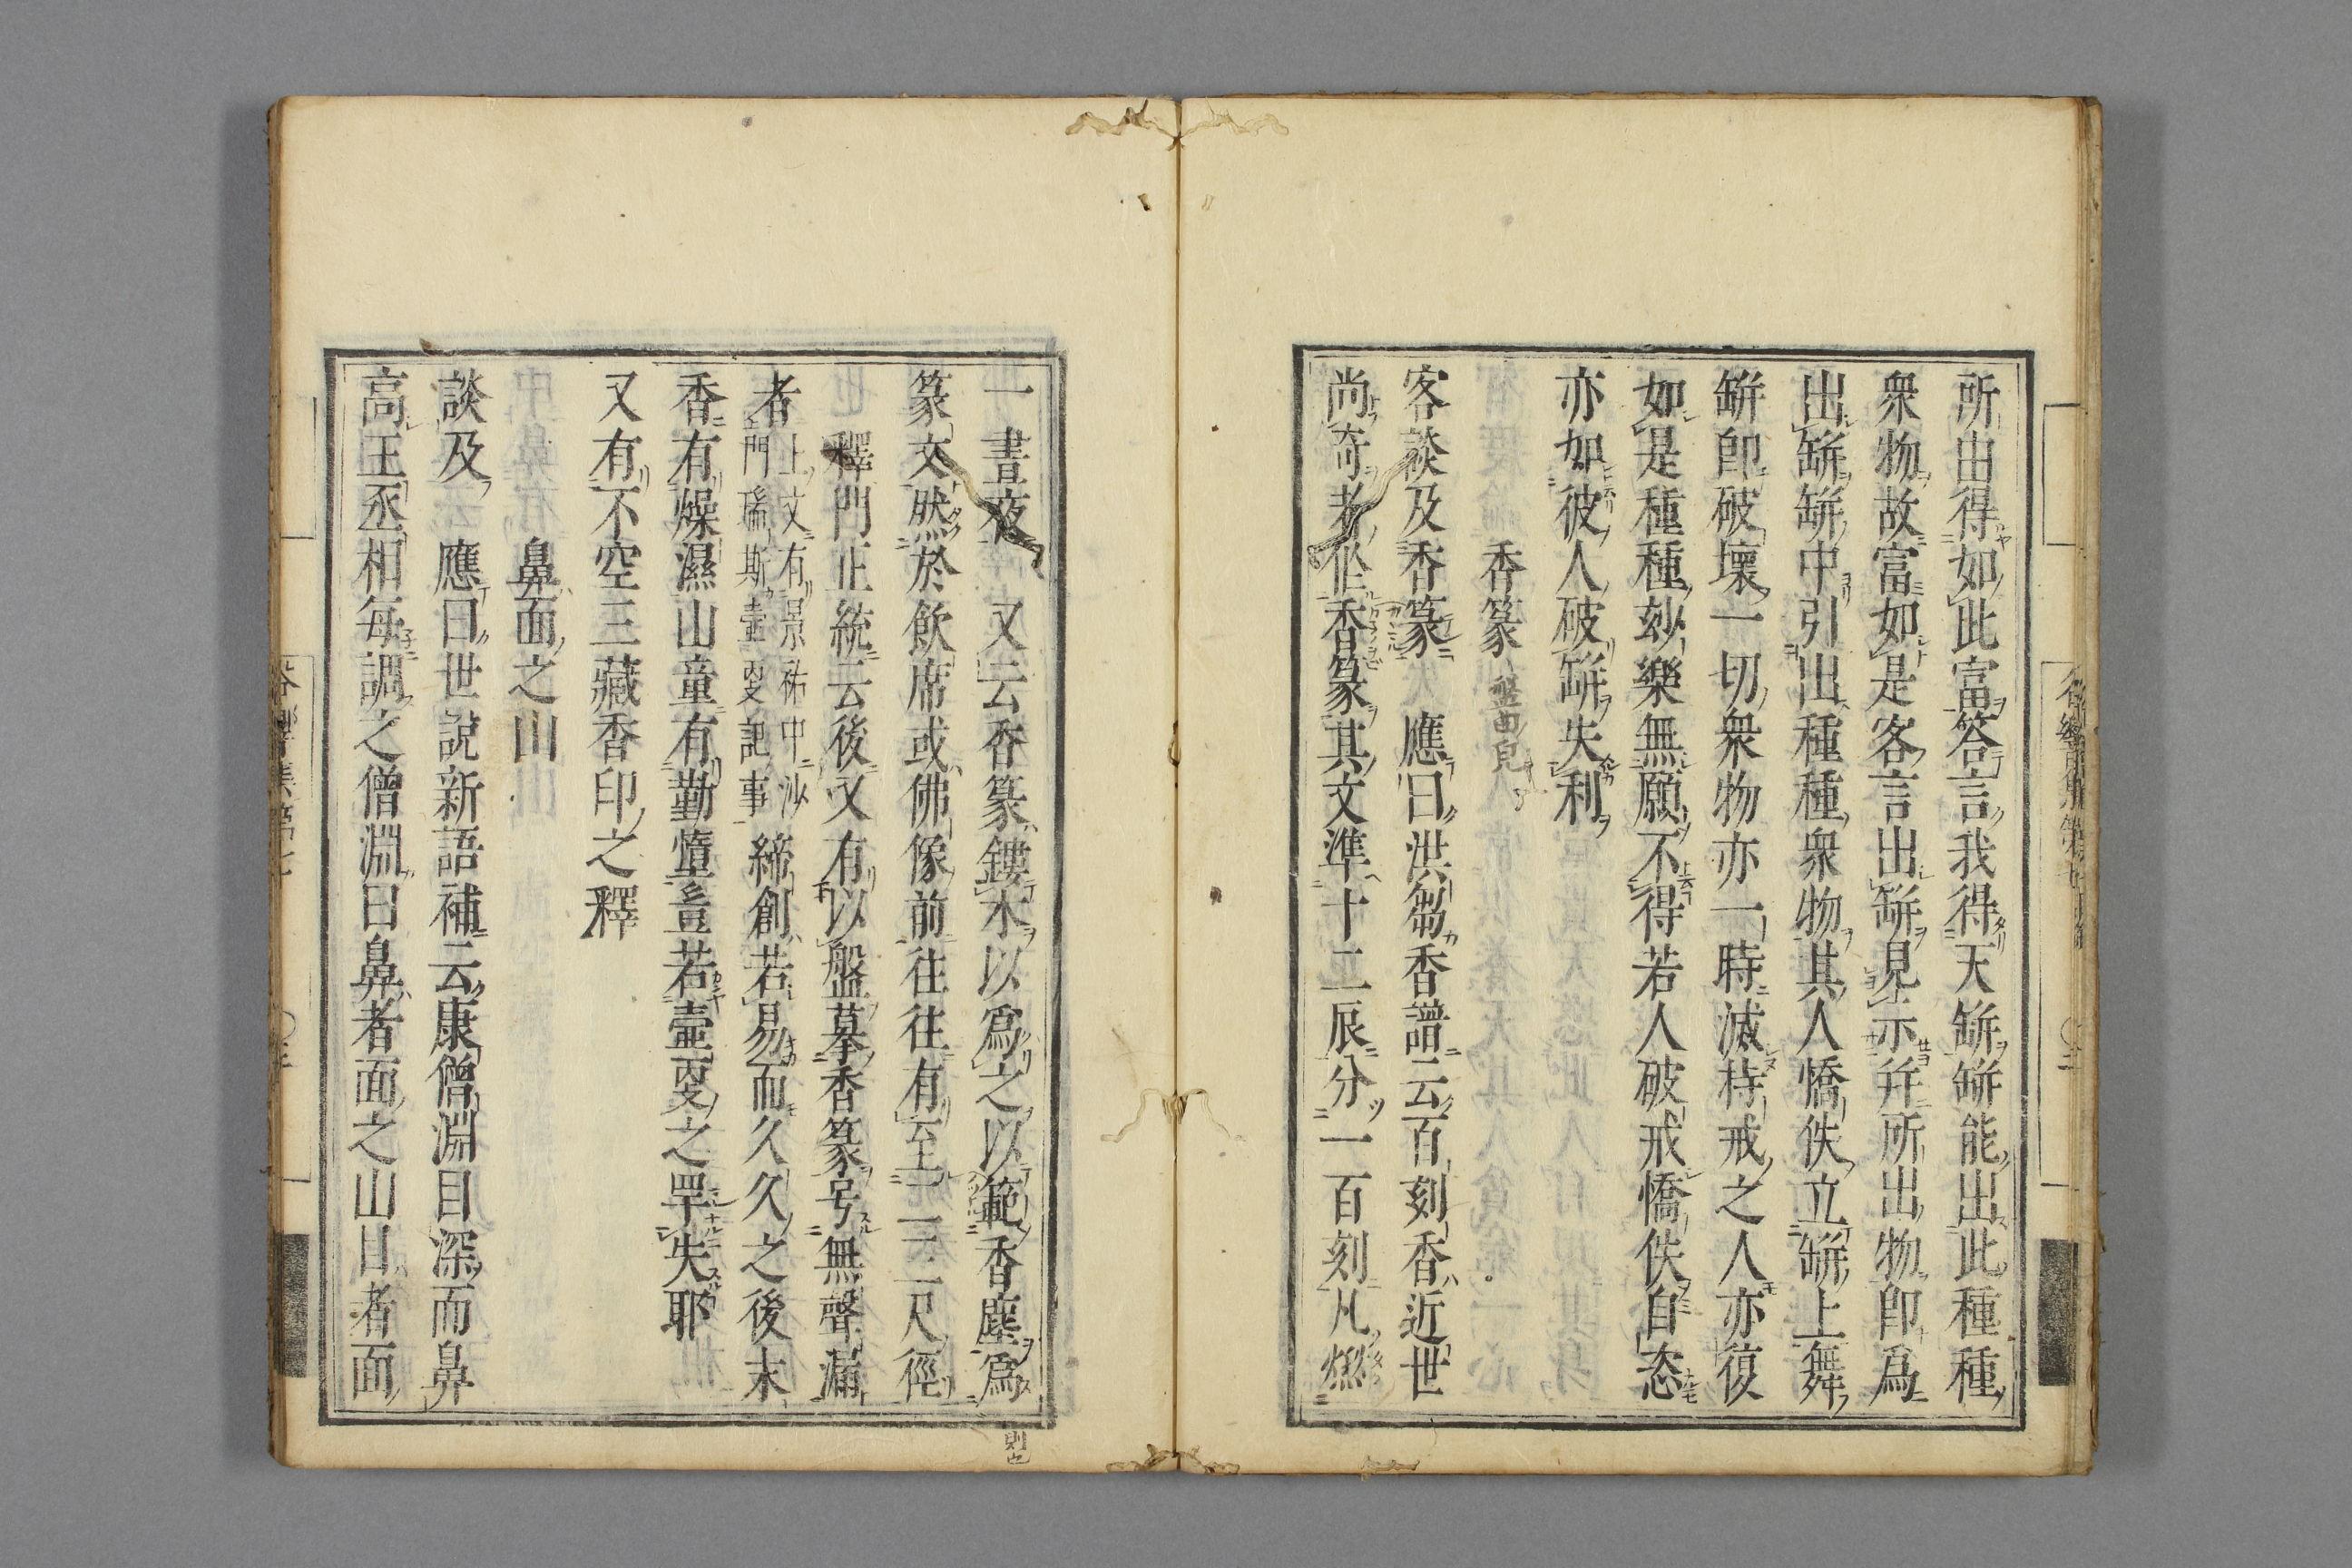 所由得如此富答言我得天缾缾能出此種種
衆物故富如是客言出缾見示幷所出物卽爲
出缾缾中引出種種衆物其人憍佚立缾上舞
缾卽破壞一切衆物亦一時滅持戒之人亦復
如是種種玅樂無願不得若人破戒憍佚自恣
亦如彼人破缾失利
香篆
客談及香篆 應曰洪芻香譜云百刻香近世
尚奇者作香篆其文準十二辰分一百刻凡燃
一晝夜 又云香篆鏤木以爲之以範香塵爲
篆文然於飮席或佛像前往往有至二三尺徑
釋門正統云後又有以盤摹香篆号無聲漏
者 上文有景祐中沙門瑞斯壺叓記事 締創若易而久久之後末
香有燥濕山童有勤惰豈若壼叓之罕失耶
又有不空三藏香印之釋
鼻面之山
談及 應曰世說新語補云康僧淵目深而鼻
高王丞相每調之僧淵曰鼻者面之山目者面